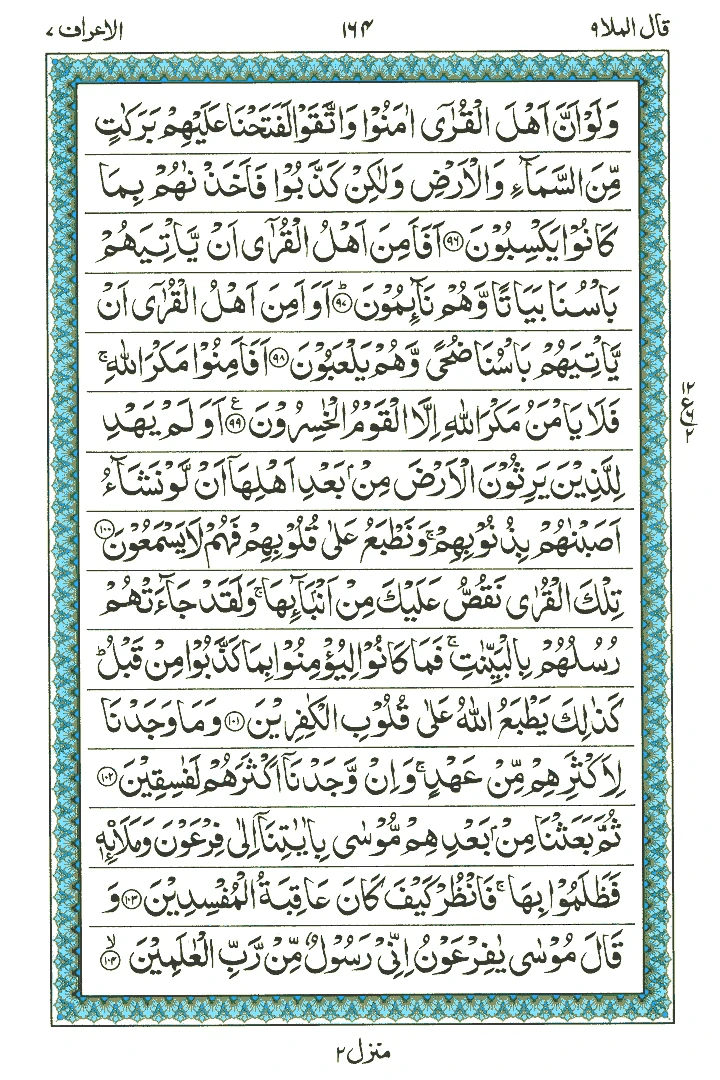 قال الملا ٩ ١٦٤ الاعراف ٧
وَلَوْ اَنَّ اَهْلَ الْقُرٰٓى اٰمَنُوْا وَاتَّقَوْا لَفَتَحْنَا عَلَيْهِمْ بَرَكٰتٍ
مِّنَ السَّمَآءِ وَالْاَرْضِ وَلٰكِنْ كَذَّبُوْا فَاَخَذْنٰهُمْ بِمَا
كَانُوْا يَكْسِبُوْنَ ۝٩٦ اَفَاَمِنَ اَهْلُ الْقُرٰٓى اَنْ يَّاْتِيَهُمْ
بَاْسُنَا بَيَاتًا وَّهُمْ نَآئِمُوْنَ ۝٩٧ؕ اَوَ اَمِنَ اَهْلُ الْقُرٰٓى اَنْ
يَّاْتِيَهُمْ بَاْسُنَا ضُحًى وَّهُمْ يَلْعَبُوْنَ ۝٩٨ اَفَاَمِنُوْا مَكْرَ اللّٰهِ ۚ
فَلَا يَاْمَنُ مَكْرَ اللّٰهِ اِلَّا الْقَوْمُ الْخٰسِرُوْنَ ۝٩٩ ع اَوَلَمْ يَهْدِ
١٢ ع ٢
لِلَّذِيْنَ يَرِثُوْنَ الْاَرْضَ مِنْۢ بَعْدِ اَهْلِهَاۤ اَنْ لَّوْ نَشَآءُ
اَصَبْنٰهُمْ بِذُنُوْبِهِمْ ۚ وَنَطْبَعُ عَلٰى قُلُوْبِهِمْ فَهُمْ لَا يَسْمَعُوْنَ ۝١٠٠
تِلْكَ الْقُرٰى نَقُصُّ عَلَيْكَ مِنْ اَنْۢبَآئِهَا ۚ وَلَقَدْ جَآءَتْهُمْ
رُسُلُهُمْ بِالْبَيِّنٰتِ ۚ فَمَا كَانُوْا لِيُؤْمِنُوْا بِمَا كَذَّبُوْا مِنْ قَبْلُ ؕ
كَذٰلِكَ يَطْبَعُ اللّٰهُ عَلٰى قُلُوْبِ الْكٰفِرِيْنَ ۝١٠١ وَمَا وَجَدْنَا
لِاَكْثَرِهِمْ مِّنْ عَهْدٍ ۚ وَاِنْ وَّجَدْنَاۤ اَكْثَرَهُمْ لَفٰسِقِيْنَ ۝١٠٢
ثُمَّ بَعَثْنَا مِنْۢ بَعْدِهِمْ مُّوْسٰى بِاٰيٰتِنَاۤ اِلٰى فِرْعَوْنَ وَمَلَا۟ئِهٖ
فَظَلَمُوْا بِهَا ۚ فَانْظُرْ كَيْفَ كَانَ عَاقِبَةُ الْمُفْسِدِيْنَ ۝١٠٣ وَ
قَالَ مُوْسٰى يٰفِرْعَوْنُ اِنِّىْ رَسُوْلٌ مِّنْ رَّبِّ الْعٰلَمِيْنَ ۝١٠٤ لا
منزل ٢